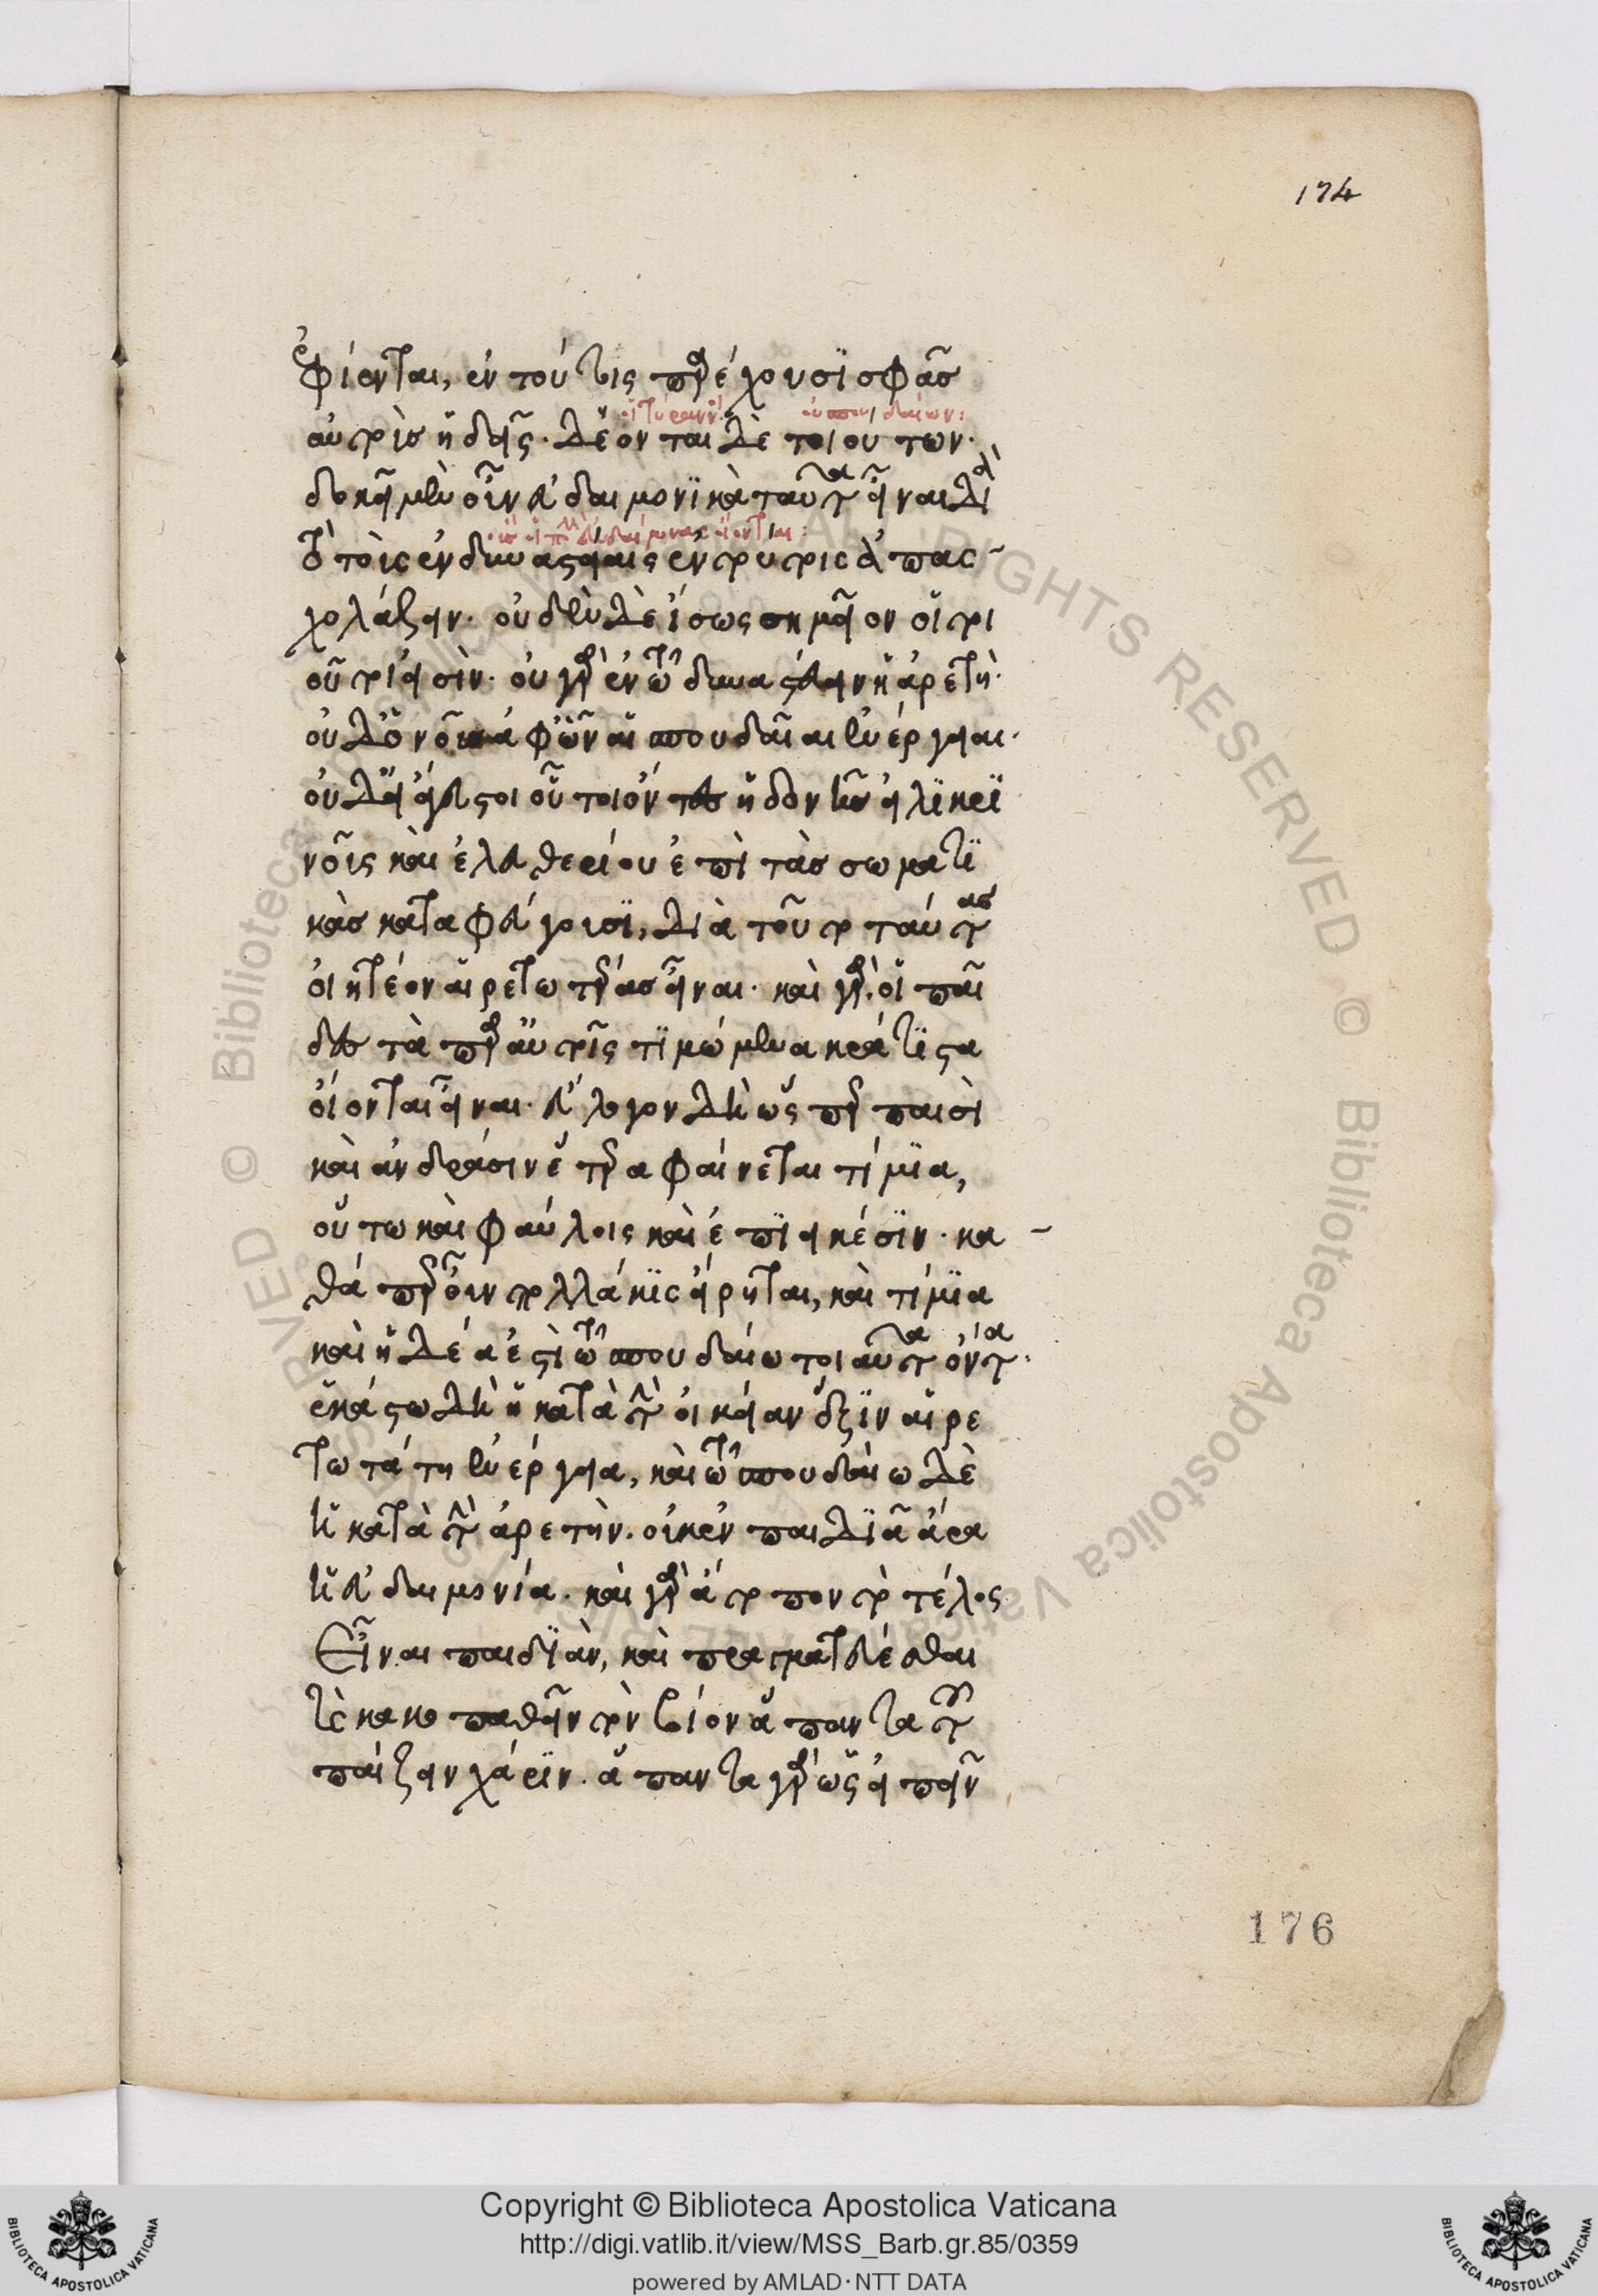 174
ἐφίενται, ἐν τούτοις παρέχουσι σφᾶσ
οἱ τύραννοι οὐ σπουδαίων:
αὐτοὺσ ἡδεῖς. δέονται δὲ τοιούτων.
δοκεῖ μὲν οὖν εὐδαιμονικὰ ταῦτα εἶναι διὰ
οὓς οἱ πολλοὶ εὐδαίμονας οἴονται:
τὸ τοὺς ἐν δυναστείαις ἐν τούτοις ἀποσ-
χολάζειν. οὐδὲν δὲ ἴσως σημεῖον οἱ τοι
οῦτοι εἰσὶν. οὐ γὰρ ἐν τῷ δυναστεύειν ἡ ἀρετὴ.
οὐδ' ὁ νοῦς ἀφ' ὧν αἱ σπουδαῖαι ἐνέργειαι.
οὐδ' εἰ ἄγευστοι οὗτοι ὄντες ἡδονῆς εἰλικρι
νοῦς καὶ ἐλευθερίου ἐπὶ τὰσ σωματι
κὰσ καταφεύγουσι, διὰ τοῦτο ταύτας
οἰητέον αἱρετωτέρασ εἶναι. καὶ γὰρ οἱ παῖ
δες τὰ παρ' αὑτοῖς τιμώμενα κράτιστα
οἴονται εἶναι. εὔλογον δὴ ὥσπερ παισὶ
καὶ ἀνδράσιν ἕτερα φαίνεται τίμια,
οὕτω καὶ φαύλοις καὶ ἐπιεικέσιν. κα-
θάπερ οὖν πολλάκις εἴρηται, καὶ τίμια
καὶ ἡδέα ἐστὶ τῷ σπουδαίω τοιαῦτα ὄντα.
ἑκάστω δὴ ἡ κατὰ τὴν οἰκείαν ἕξιν αἱρε
τωτάτη ἐνέργεια, καὶ τῷ σπουδαίω δὲ
ἡ κατὰ τὴν ἀρετὴν. οὐκ ἐν παιδιᾶ ἄρα
ἡ εὐδαιμονία. καὶ γὰρ ἄτοπον τὸ τέλος
Εἶναι παιδιὰν, καὶ πραγματεύεσθαι
τὲ κακοπαθεῖν τὸν βίον ἅπαντα τοῦ
παίζειν χάριν. ἅπαντα γὰρ ὡς εἰπεῖν
176
Copyright © Biblioteca Apostolica Vaticana
http://digi.vatlib.it/view/MSS_Barb.gr.85/0359
powered by AMLAD·NTT DATA